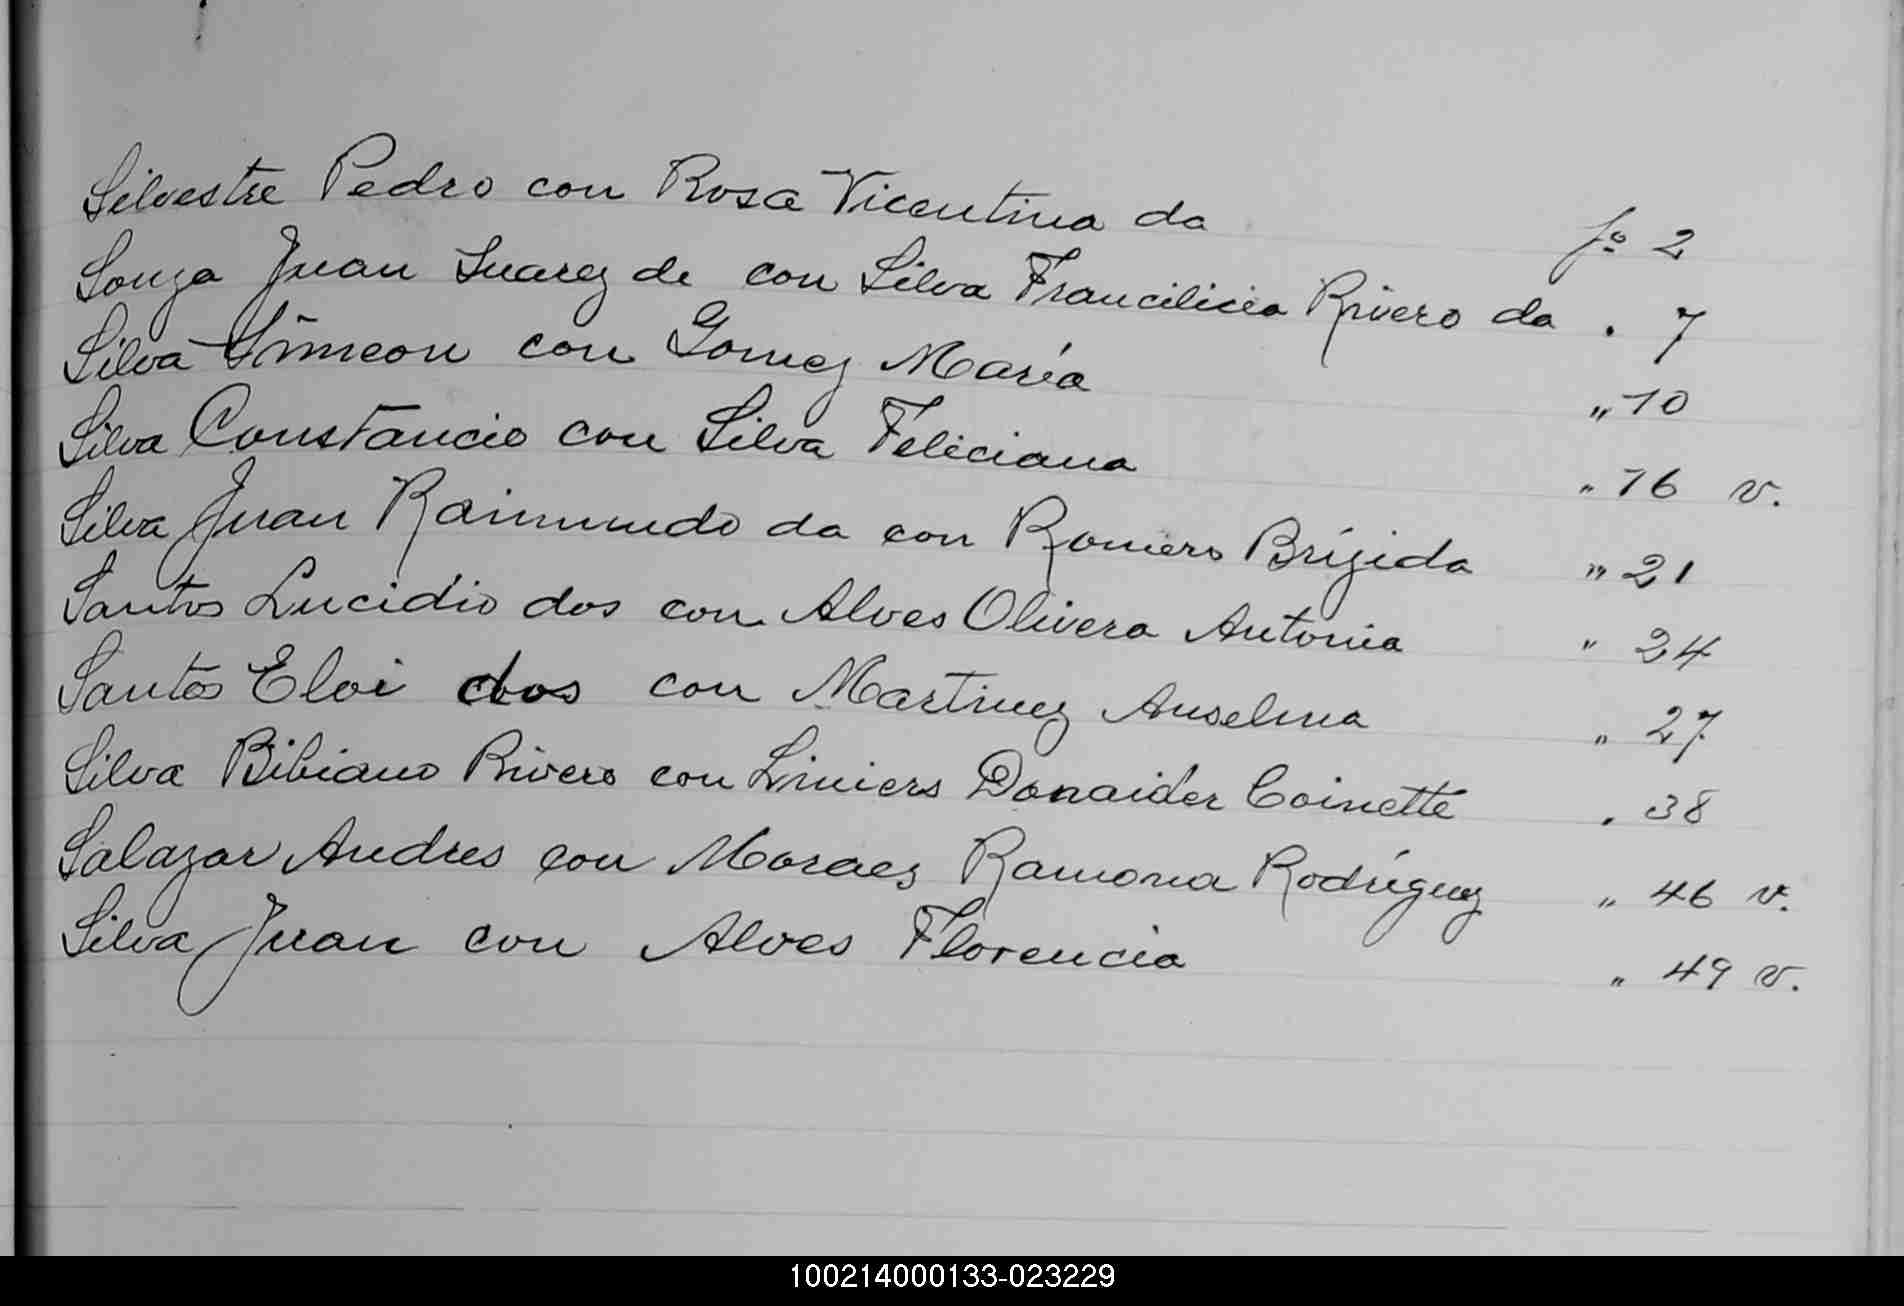 Silvestre Pedro con Rosa Vicentina da fº 2
Souza Juan Suarez de con Silva Francilicia Rivero da . 7
Silva Simeon con Gomez María " 10
Silva Constancio con Silva Feliciana " 16 v.
Silva Juan Raimundo da con Romero Brígida " 21
Santos Lucidio dos con Alves Olivera Antonia " 24
Santos Eloi dos con Martinez Anselma " 27
Silva Bibiano Rivero con Liniers Donaider Coinette . 38
Salazar Andres con Moraes Ramona Rodríguez " 46 v.
Silva Juan con Alves Florencia " 49 v.
100214000133-023229